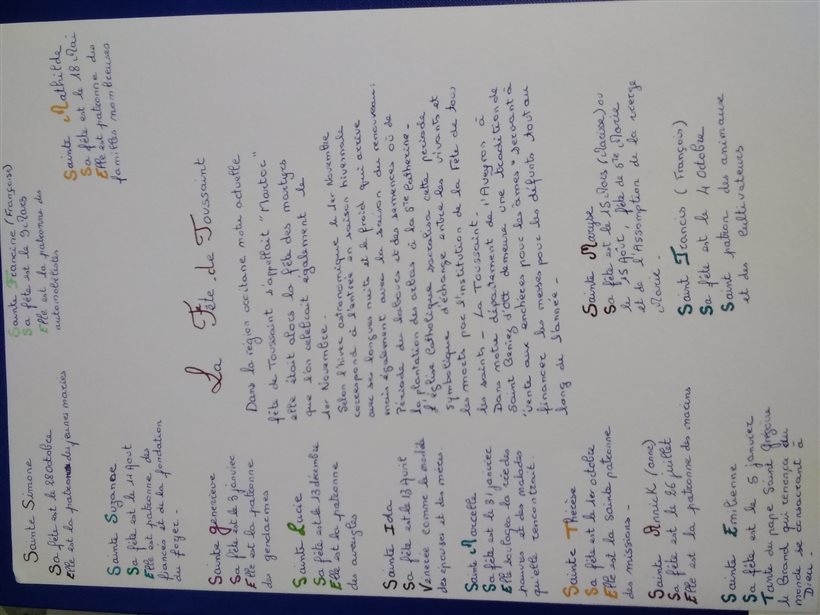 Sainte Simone
Sa fête est le 28 Octobre
Elle est la patronne des jeunes mariés
Sainte Suzanne
Sa fête est le 11 Août
Elle est patronne des
fiancés et de la fondation
du foyer.
Sainte Geneviève
Sa fête est le 3 janvier
Elle est la patronne
des gendarmes
Sainte Lucie
Sa fête est le 13 décembre
Elle est la patronne
des aveugles
Sainte Ida
Sa fête est le 13 Avril
Vénérée comme le modèle
des épouses et des mères.
Sainte Marcelle
Sa fête est le 31 janvier
Elle soulagea la cécité des
pauvres et des malades
qu'elle rencontrait.
Sainte Thérèse
Sa fête est le 1er octobre
Elle est la Sainte patronne
des missions.
Sainte Annick (Anne)
Sa fête est le 26 juillet
Elle est la patronne des marins
Sainte Emilienne
Sa fête est le 5 janvier
Tante du pape Saint Grégoire
le Grand qui renonça au
monde se consacrant à
Dieu.
Sainte Francine (François)
Sa fête est le 9 Mars
Elle est la patronne des
automobilistes
Sainte Mathilde
Sa fête est le 18 Mai
Elle est patronne des
familles nombreuses
La Fête de Toussaint
Dans la région occitane notre actuelle
fête de Toussaint s'appellait "Martror"
elle était alors la fête des martyrs
que l'on célébrait également le
1er Novembre.
Selon l'hiver astronomique le 1er Novembre
correspond à l'entrée en saison hivernale
avec ses longues nuits et le froid qui arrive
mais également avec la saison du renouveau:
Période du labours et des semences ou de
la plantation des arbres à la Ste Catherine.
l'église Catholique socralisa cette période
symbolique d'échange entre les vivants et
les morts par l'institution de la Fête de tous
les saints - La Toussaint.
Dans notre département de l'Aveyron à
Saint Geniez d'Olt demeure une tradition de
"vente aux enchères pour les âmes" servant à
financer les messes pour les défunts tout au
long de l'année.
Sainte Maryse
Sa fête est le 15 Mars (Marise) ou
le 15 Août, fête de Ste Marie
et de l'Assomption de la vierge
Marie.
Saint Francis (François)
Sa fête est le 4 Octobre
Saint patron des animaux
et des Cultivateurs